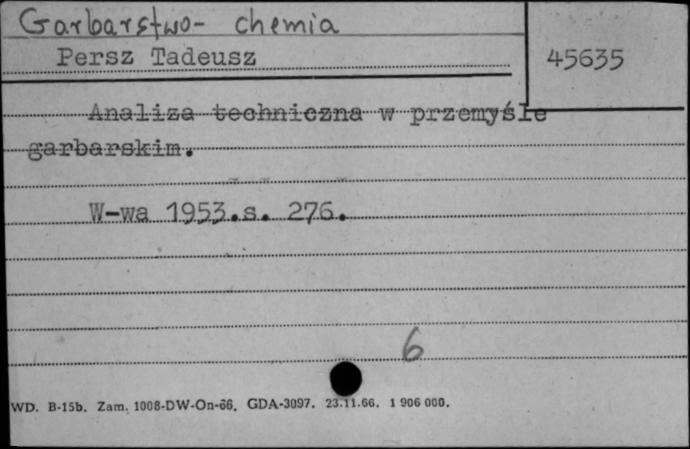 Garbarstwo- chemia
Persz Tadeusz
45635
Analiza techniczna w przemyśle
garbarskim.
W-wa 1953.s. 276.
6
WD. B-15b. Zam. 1008-DW-On-66. GDA-3097. 23.11.66. 1 906 000.